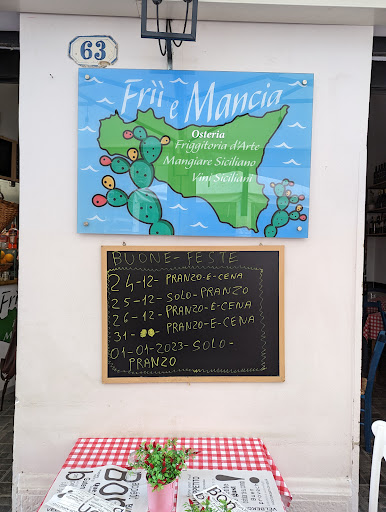 63
Frìì e Mancia
Osteria
Friggitoria d'Arte
Mangiare Siciliano
Vini Siciliani
BUONE-FESTE
24-12- PRANZO-E-CENA
25-12- SOLO-PRANZO
26-12- PRANZO-E-CENA
31- PRANZO-E-CENA
01-01-2023-SOLO-
PRANZO